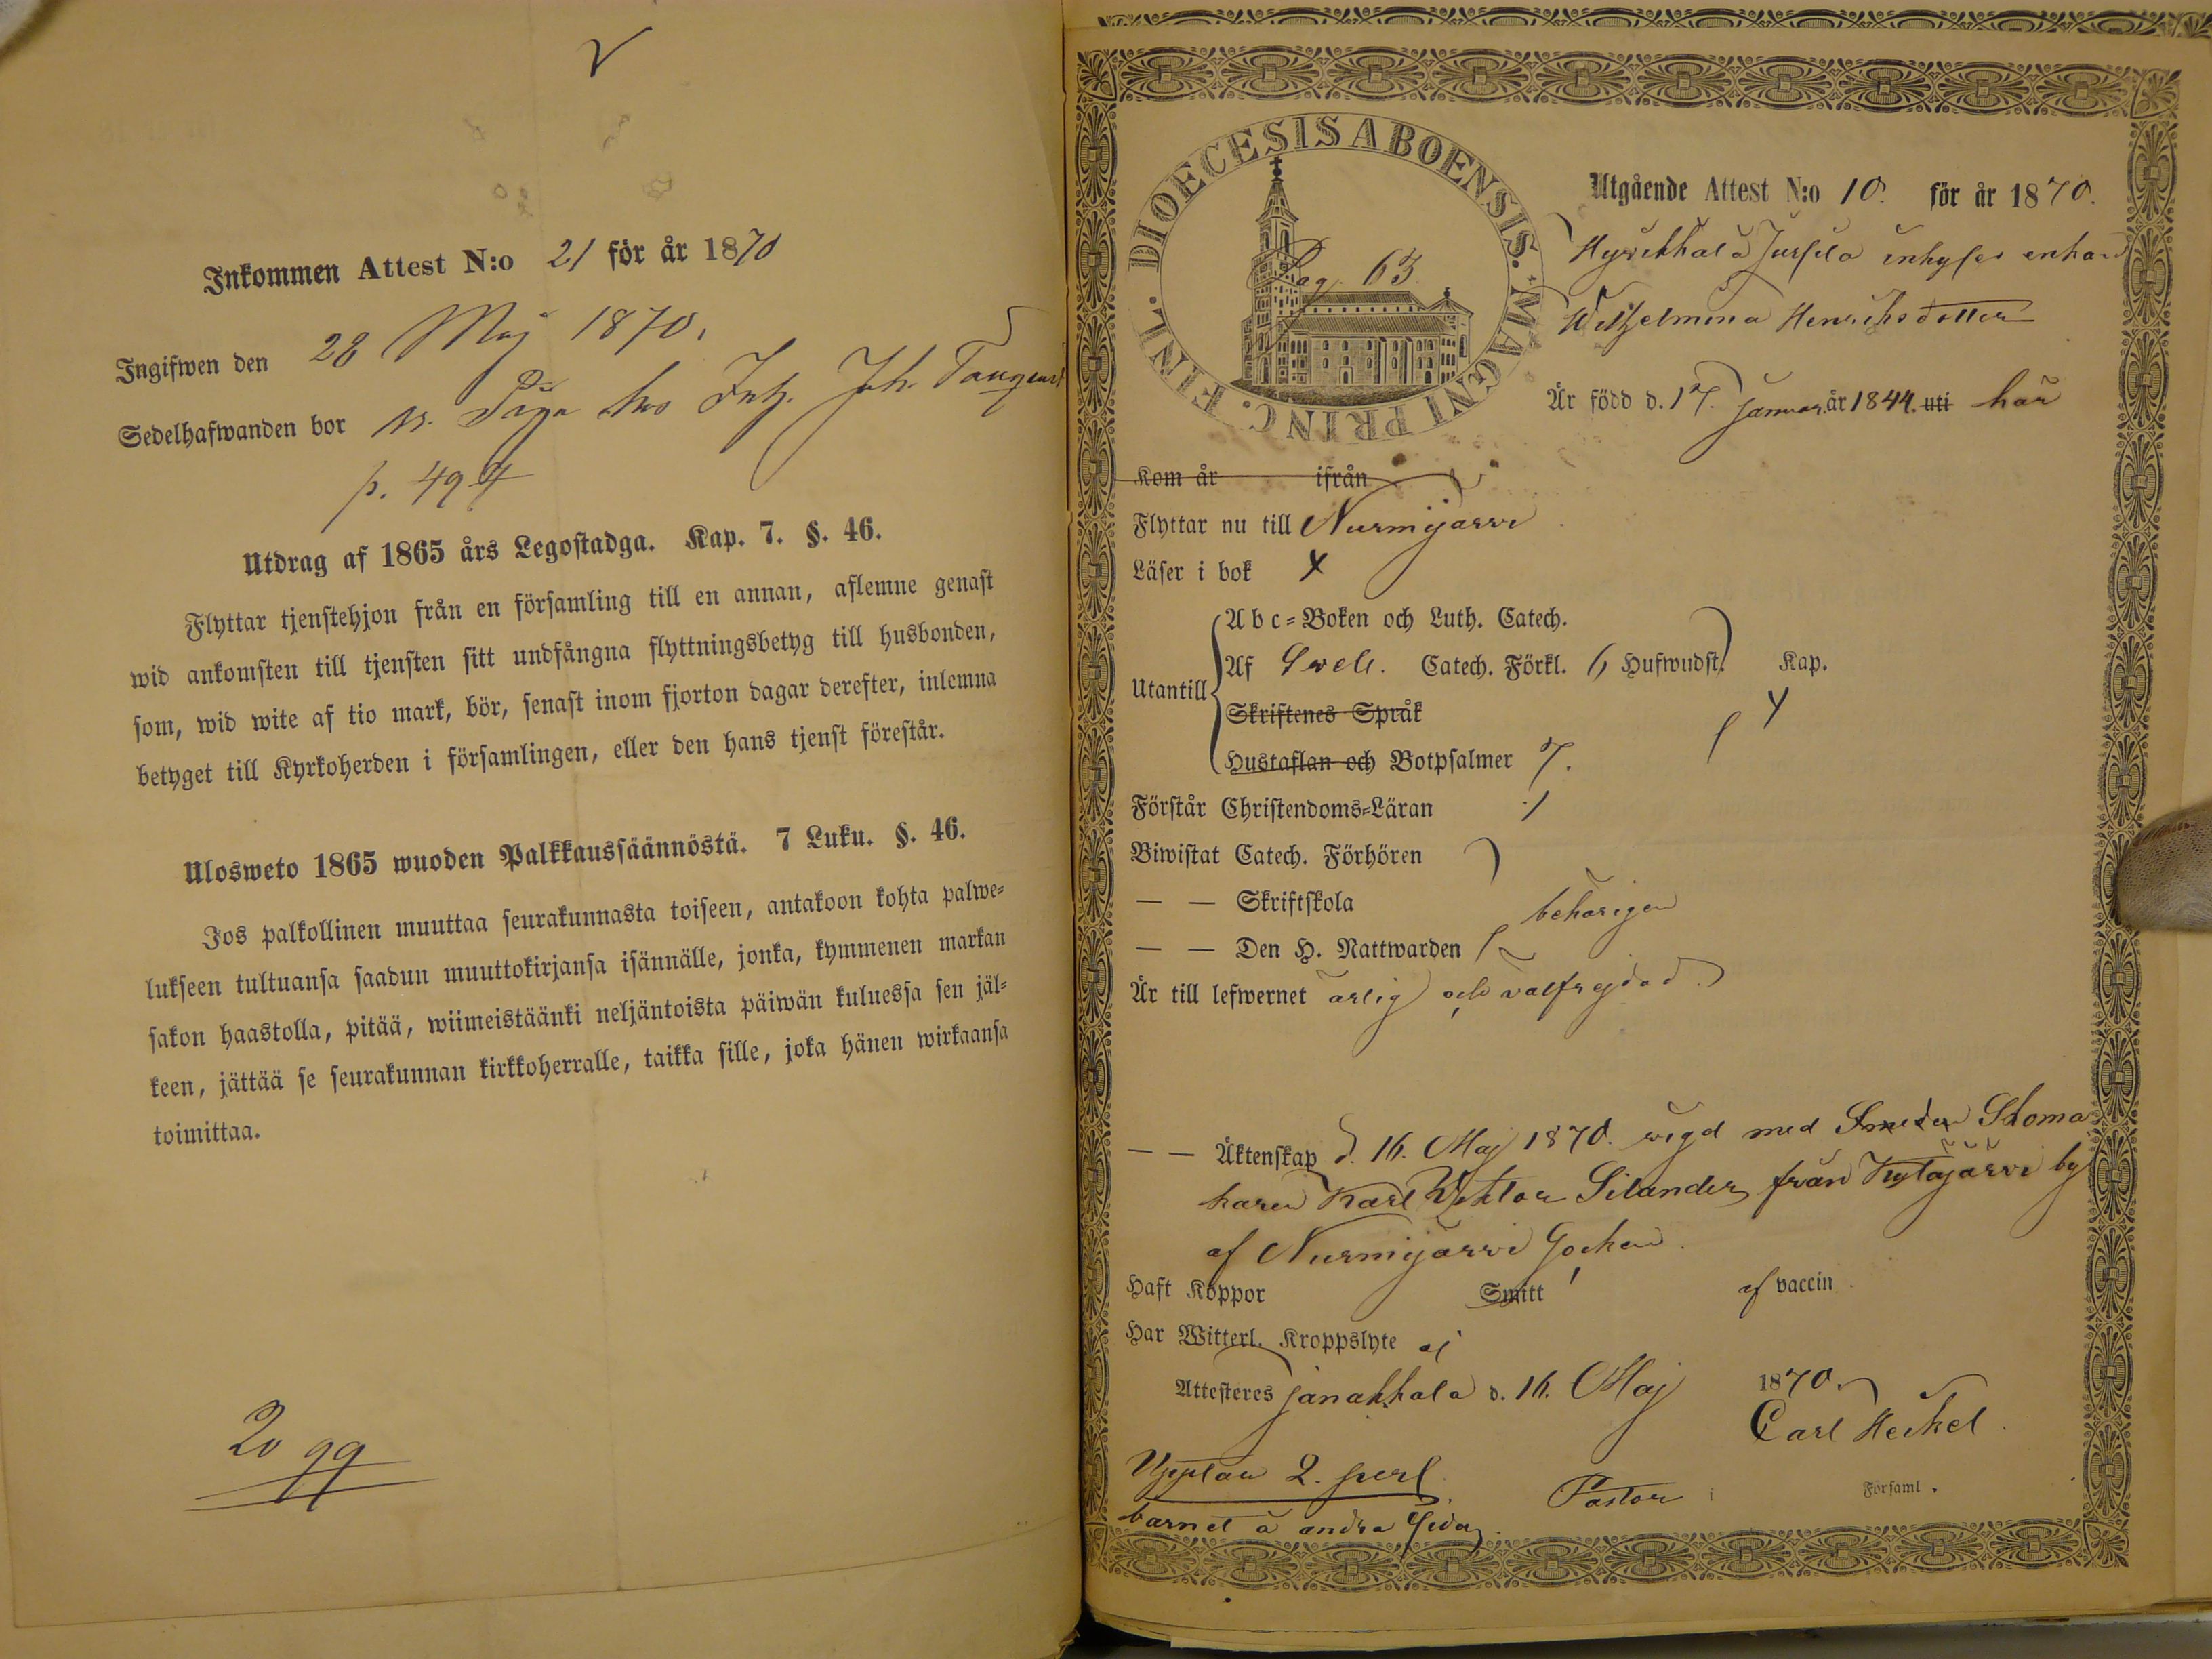 Inkommen Attest N:o 21 för år 1870
Ingifwen den 28 Maj 1870.
Sedelhafwanden bor hos Joh.
p. 494
Utdrag af 1865 års Legostadga. Kap. 7. §. 46.
Flyttar tjenstehjon från en församling till en annan, aflemne genast
wid ankomsten till tjensten sitt undfångna flyttningsbetyg till husbonden,
som, wid wite af tio mark, bör, senast inom fjorton dagar derefter, inlemna
betyget till Kyrkoherden i församlingen, eller den hans tjenst förestår.
Ulosweto 1865 wuoden Palkkaussäännöstä. 7 Luku. §. 46.
Jos palkollinen muuttaa seurakunnasta toiseen, antakoon kohta palwe=
lukseen tultuansa saadun muuttokirjansa isännälle, jonka, kymmenen markan
sakon haastolla, pitää, wiimeistäänki neljäntoista päiwän kuluessa sen jäl=
keen, jättää se seurakunnan kirkkoherralle, taikka sille, joka hänen wirkaansa
toimittaa.
20 99
DIOECESIS ABOENSIS. MAGNI PRINC. FINL.
Pag. 63.
Utgående Attest N:o 10. för år 1870.
inhyses enkan
Wilhelmina Henriksdotter
Är född d. 17. Januar. år 1844. uti här
Kom år ifrån
Flyttar nu till Nurmijärvi
Läser i bok x
Utantill
A b c=Boken och Luth. Catech.
Af Sweb. Catech. Förkl. 6 Hufwudst. Kap.
Skriftenes Språk
Hustaflan och Botpsalmer 7.
Förstår Christendoms=Läran
Biwistat Catech. Förhören
— — Skriftskola behörigen
— — Den H. Nattwarden
Är till lefwernet ärlig och välfrejdad.
— — Äktenskap d. 16. Maj 1870. vigd med Smeden Skoma
karen Karl Viktor Silander från Kytäjärvi by
af Nurmijärvi Socken.
Haft Koppor Smitt af vaccin
Har Witterl. Kroppslyte ej
Attesteres Janakkala d. 16. Maj 1870.
Carl Heikel.
Pastor i Församl.
barnet å andra sidan.